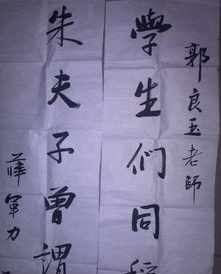 郭良玉老師
學生們同
朱夫子曾謂
薛軍力